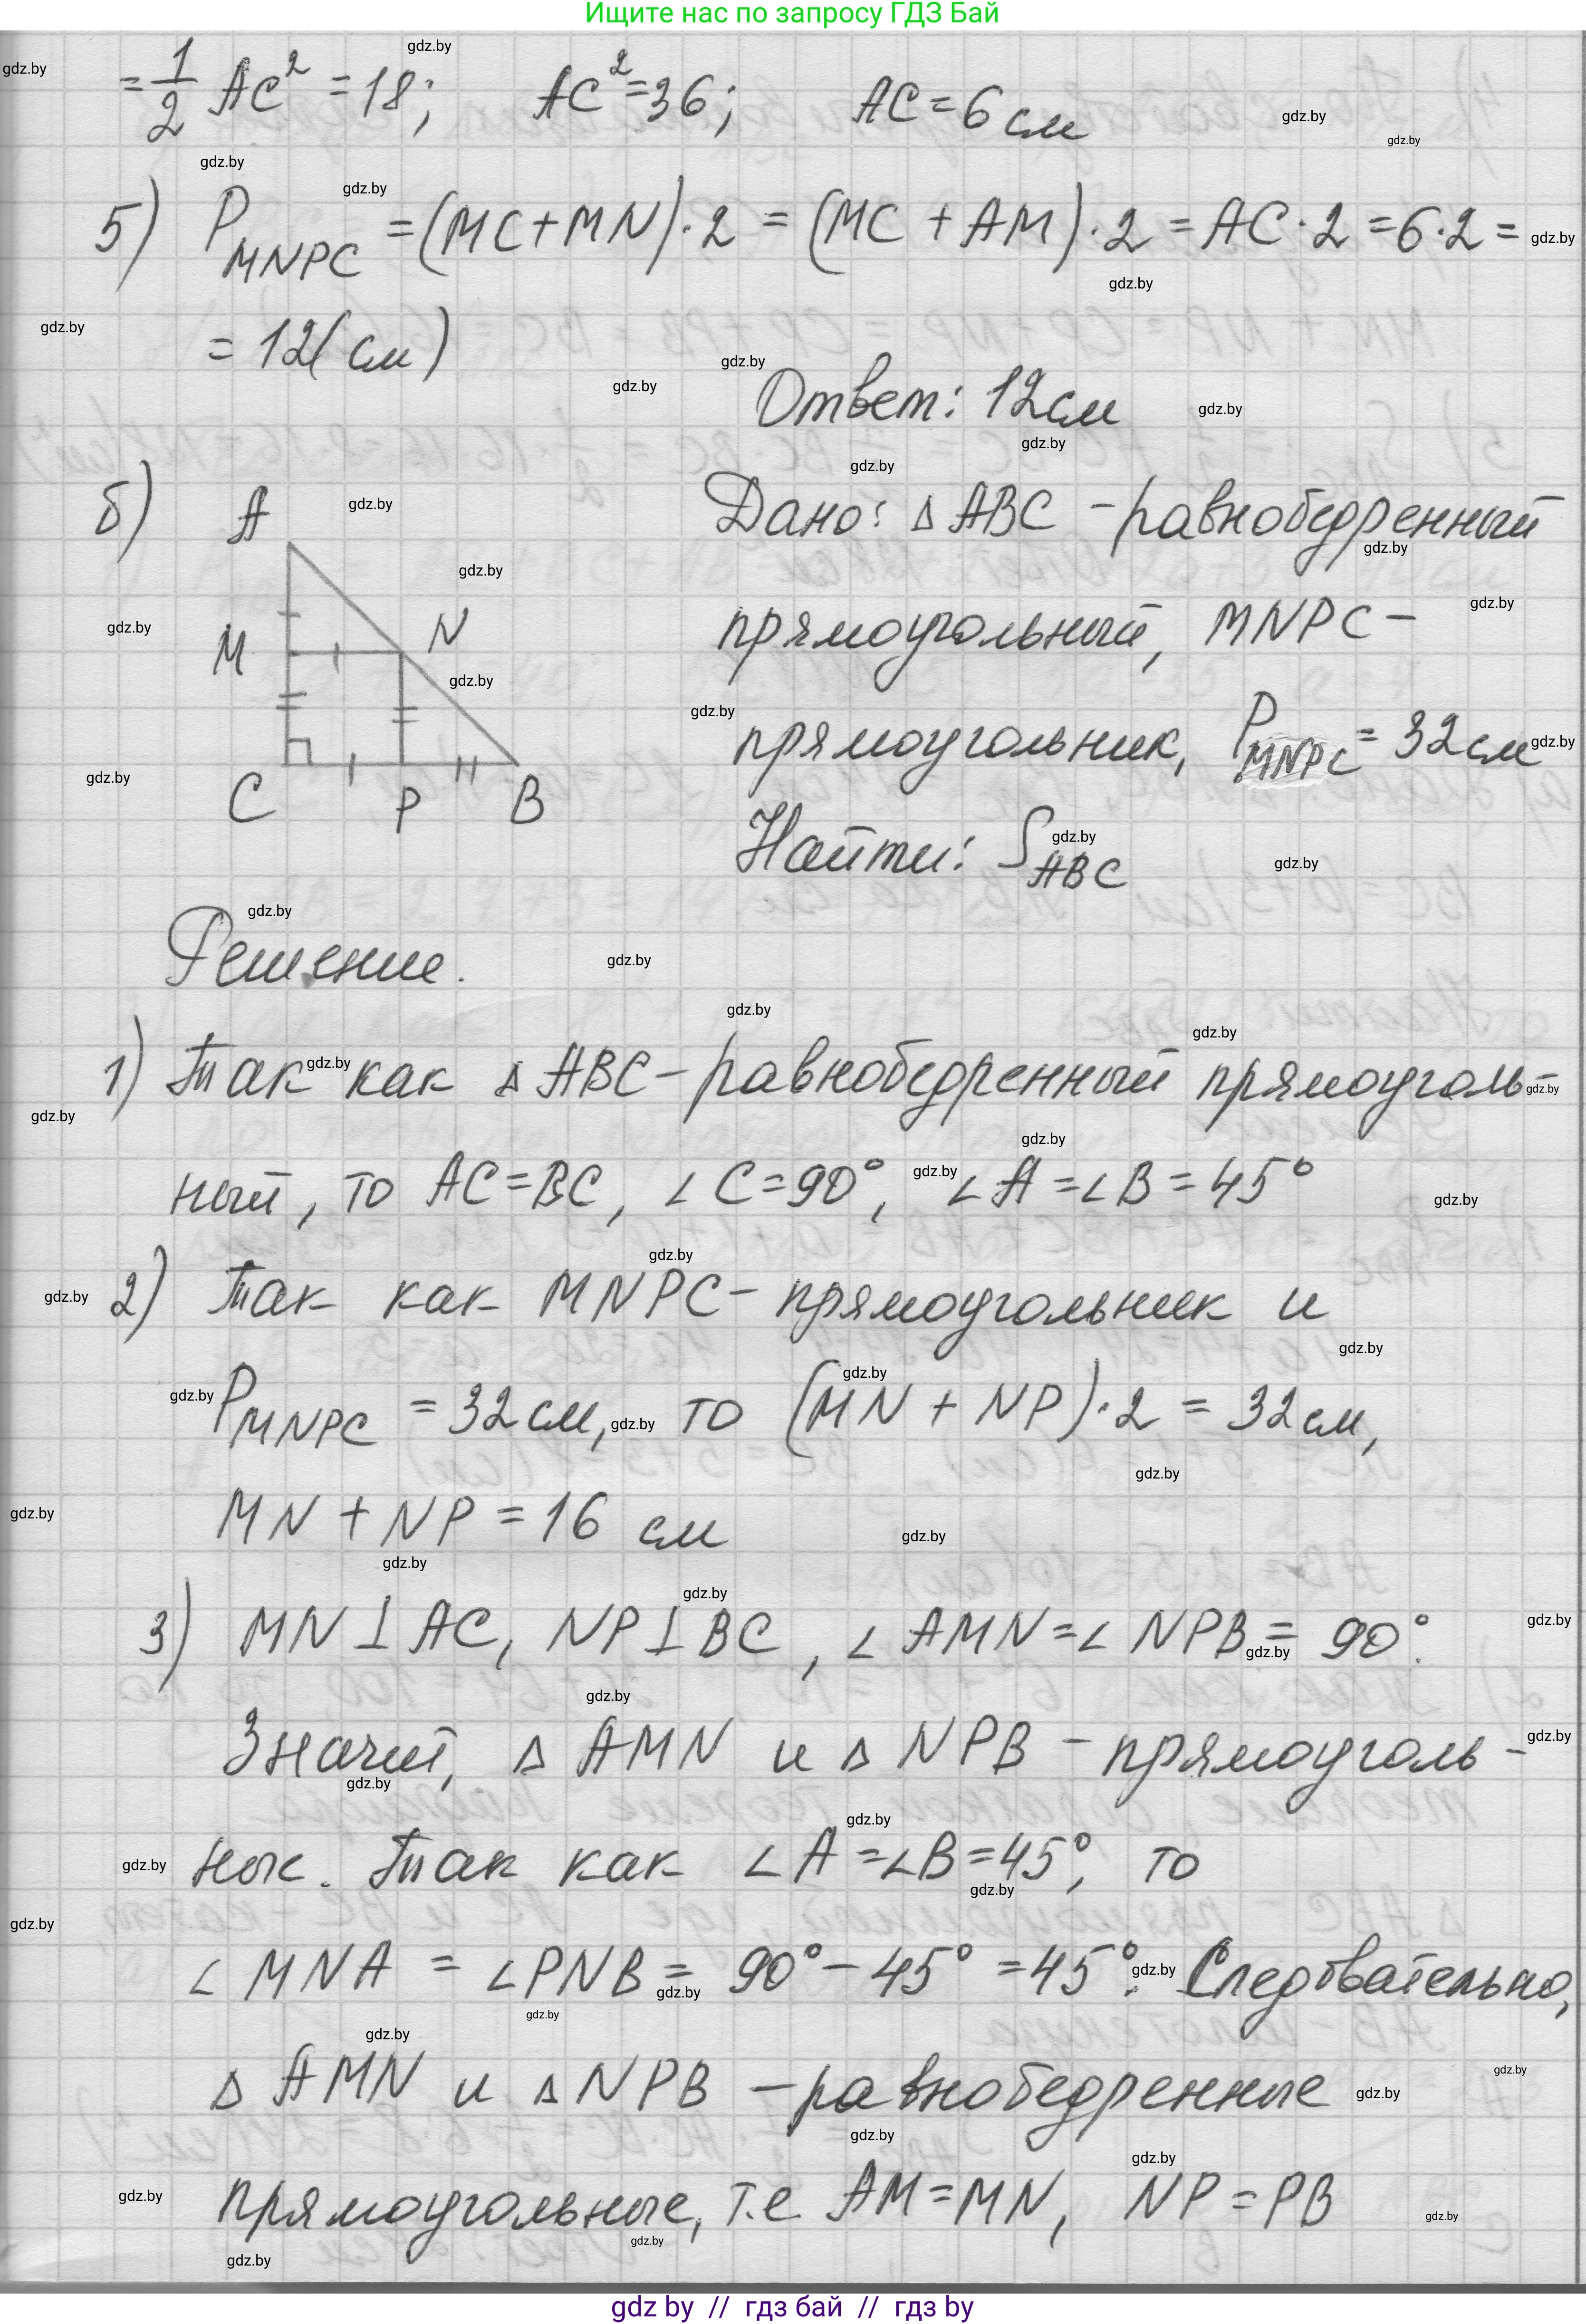 Ищите нас по запросу ГДЗ Бай
= 1/2 AC² = 18; AC² = 36; AC = 6 см
5) P_MNPC = (MC + MN) · 2 = (MC + AM) · 2 = AC · 2 = 6 · 2 =
= 12(см)
Ответ: 12 см
б) A M N C P B
Дано: △ ABC - равнобедренный
прямоугольный, MNPC -
прямоугольник, P_MNPC = 32 см
Найти: S_ABC
Решение.
1) Так как △ ABC - равнобедренный прямоуголь-
ный, то AC = BC, ∠ C = 90°, ∠ A = ∠ B = 45°
2) Так как MNPC - прямоугольник и
P_MNPC = 32 см, то (MN + NP) · 2 = 32 см,
MN + NP = 16 см
3) MN ⊥ AC, NP ⊥ BC, ∠ AMN = ∠ NPB = 90°.
Значит, △ AMN и △ NPB - прямоуголь-
ные. Так как ∠ A = ∠ B = 45°, то
∠ MNA = ∠ PNB = 90° - 45° = 45°. Следовательно,
△ AMN и △ NPB - равнобедренные
прямоугольные, т.е. AM = MN, NP = PB
gdz by // гдз бай // гдз by